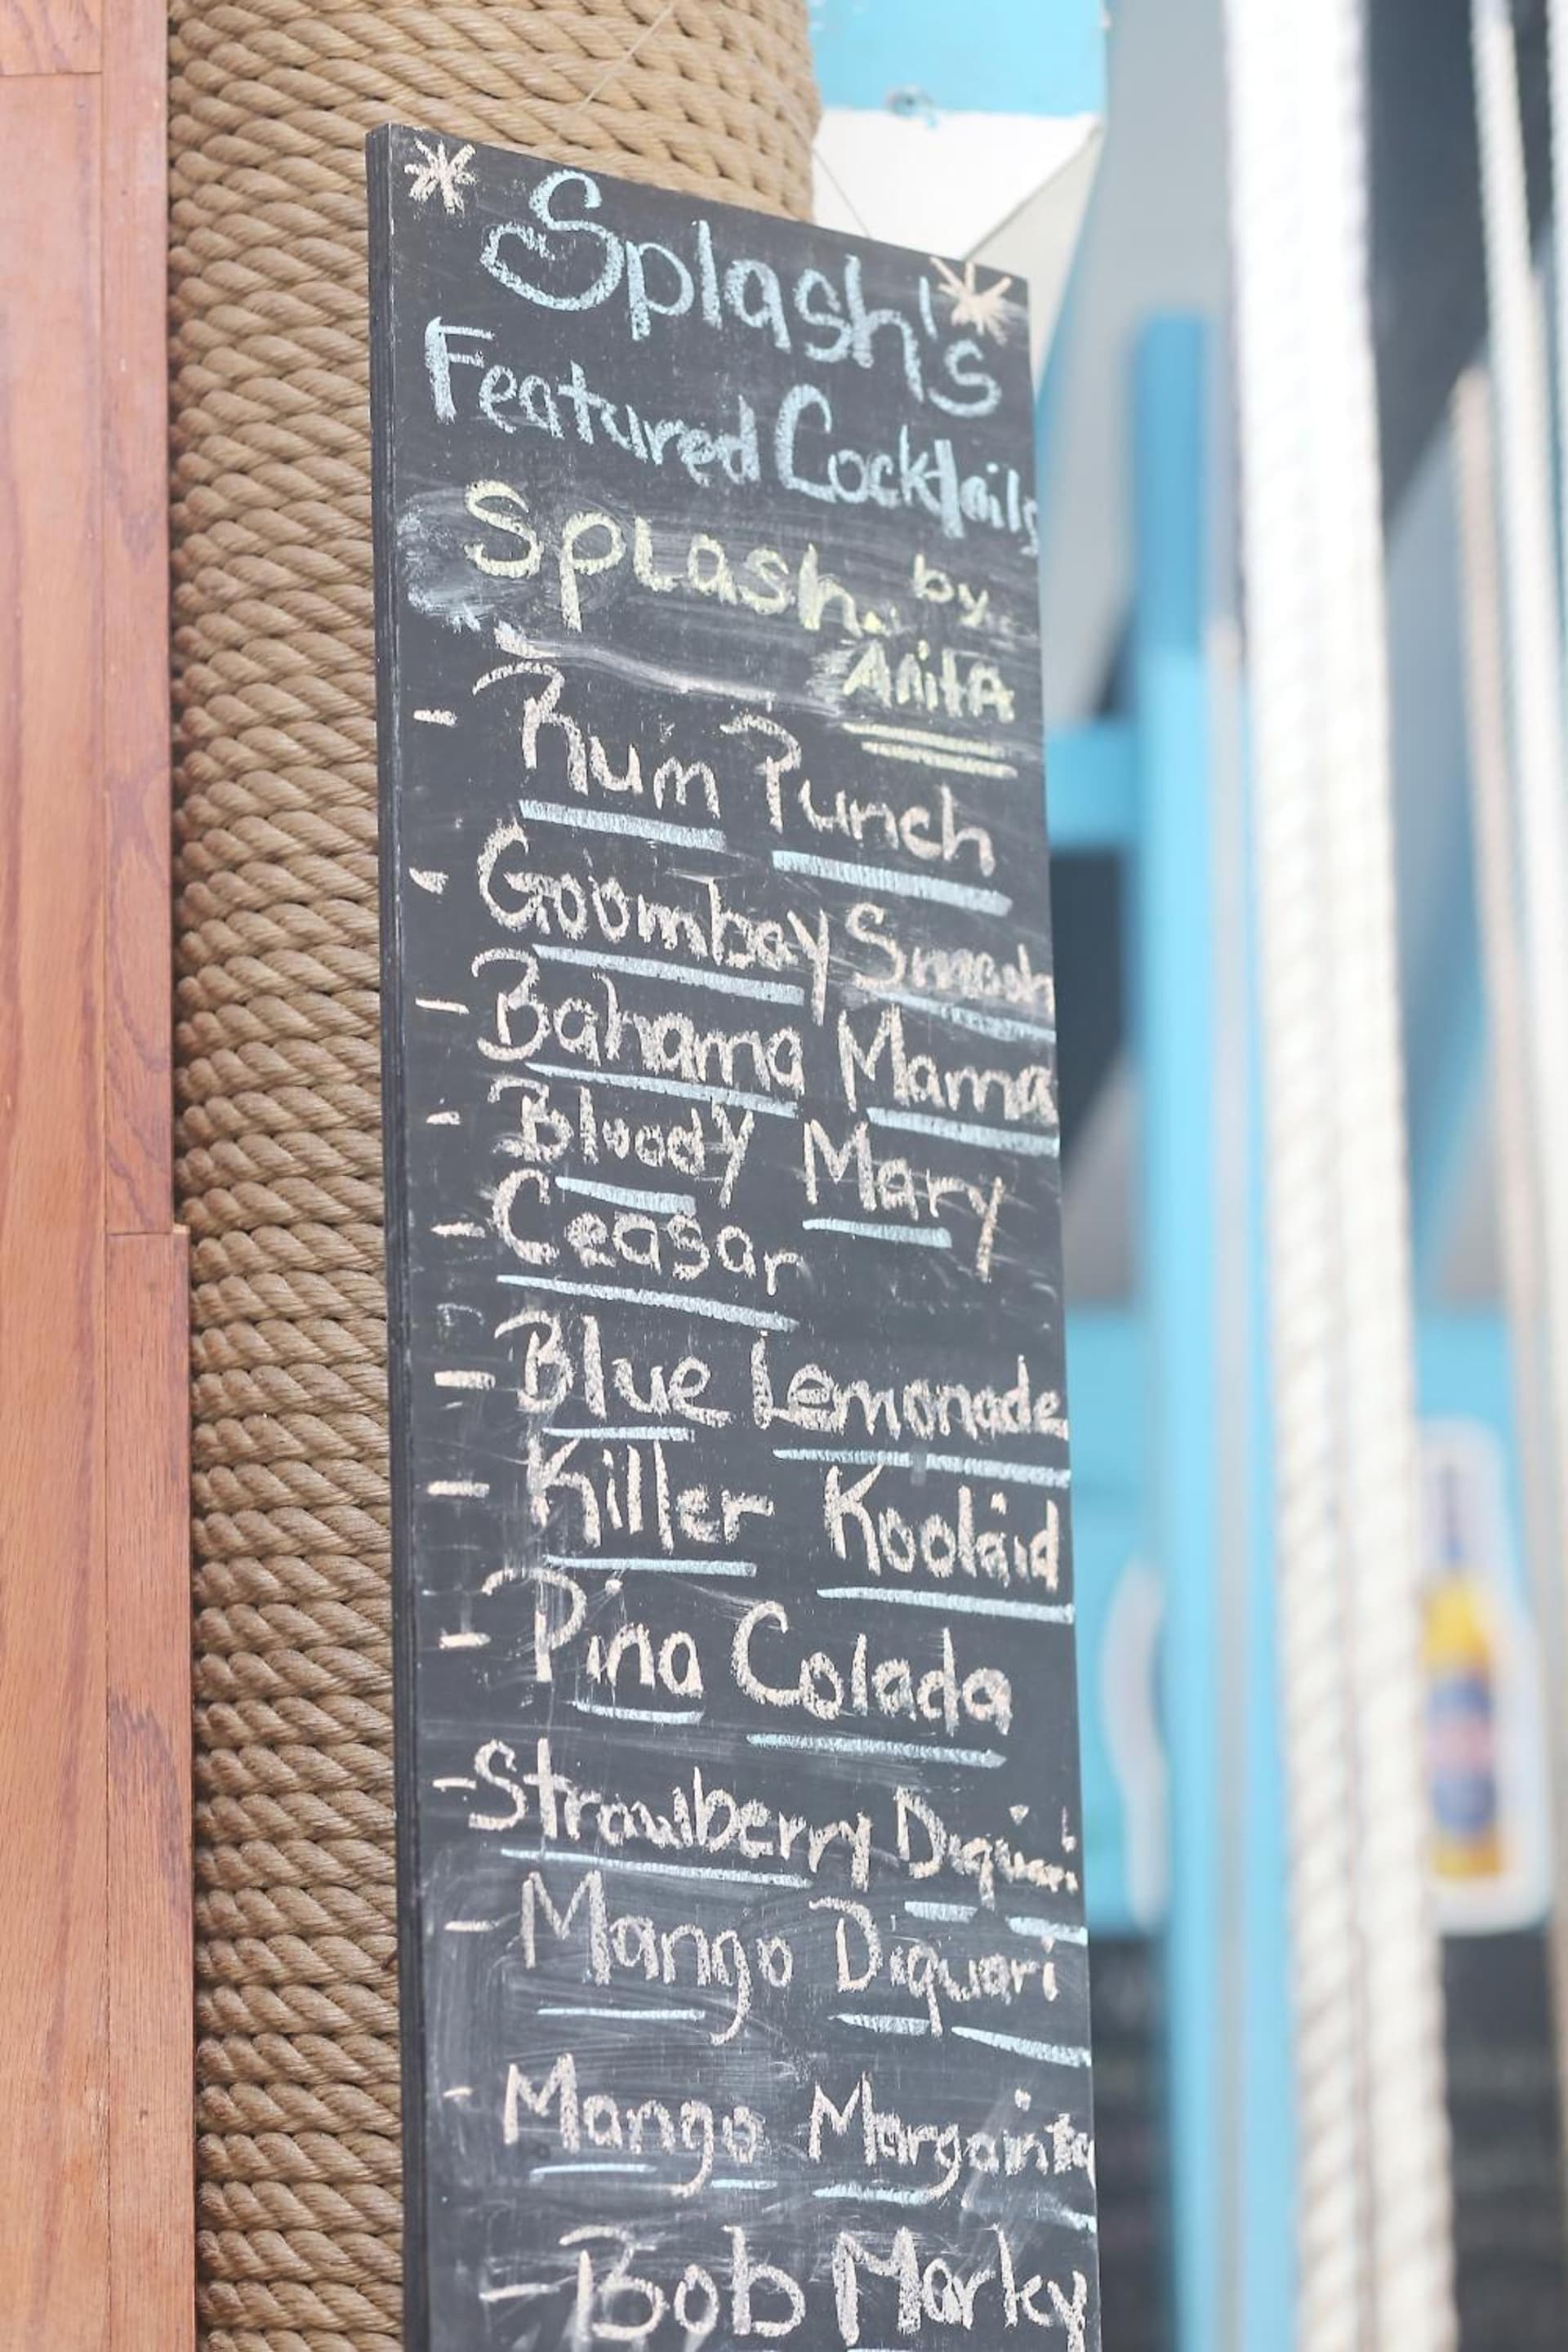 Splash's
Featured Cocktails
Splash by
Anita
- Rum Punch
- Goombay Smash
- Bahama Mama
- Bloody Mary
- Ceasar
- Blue Lemonade
- Killer Koolaid
- Pina Colada
- Strawberry Diquari
- Mango Diquari
- Mango Margainta
- Bob Marley